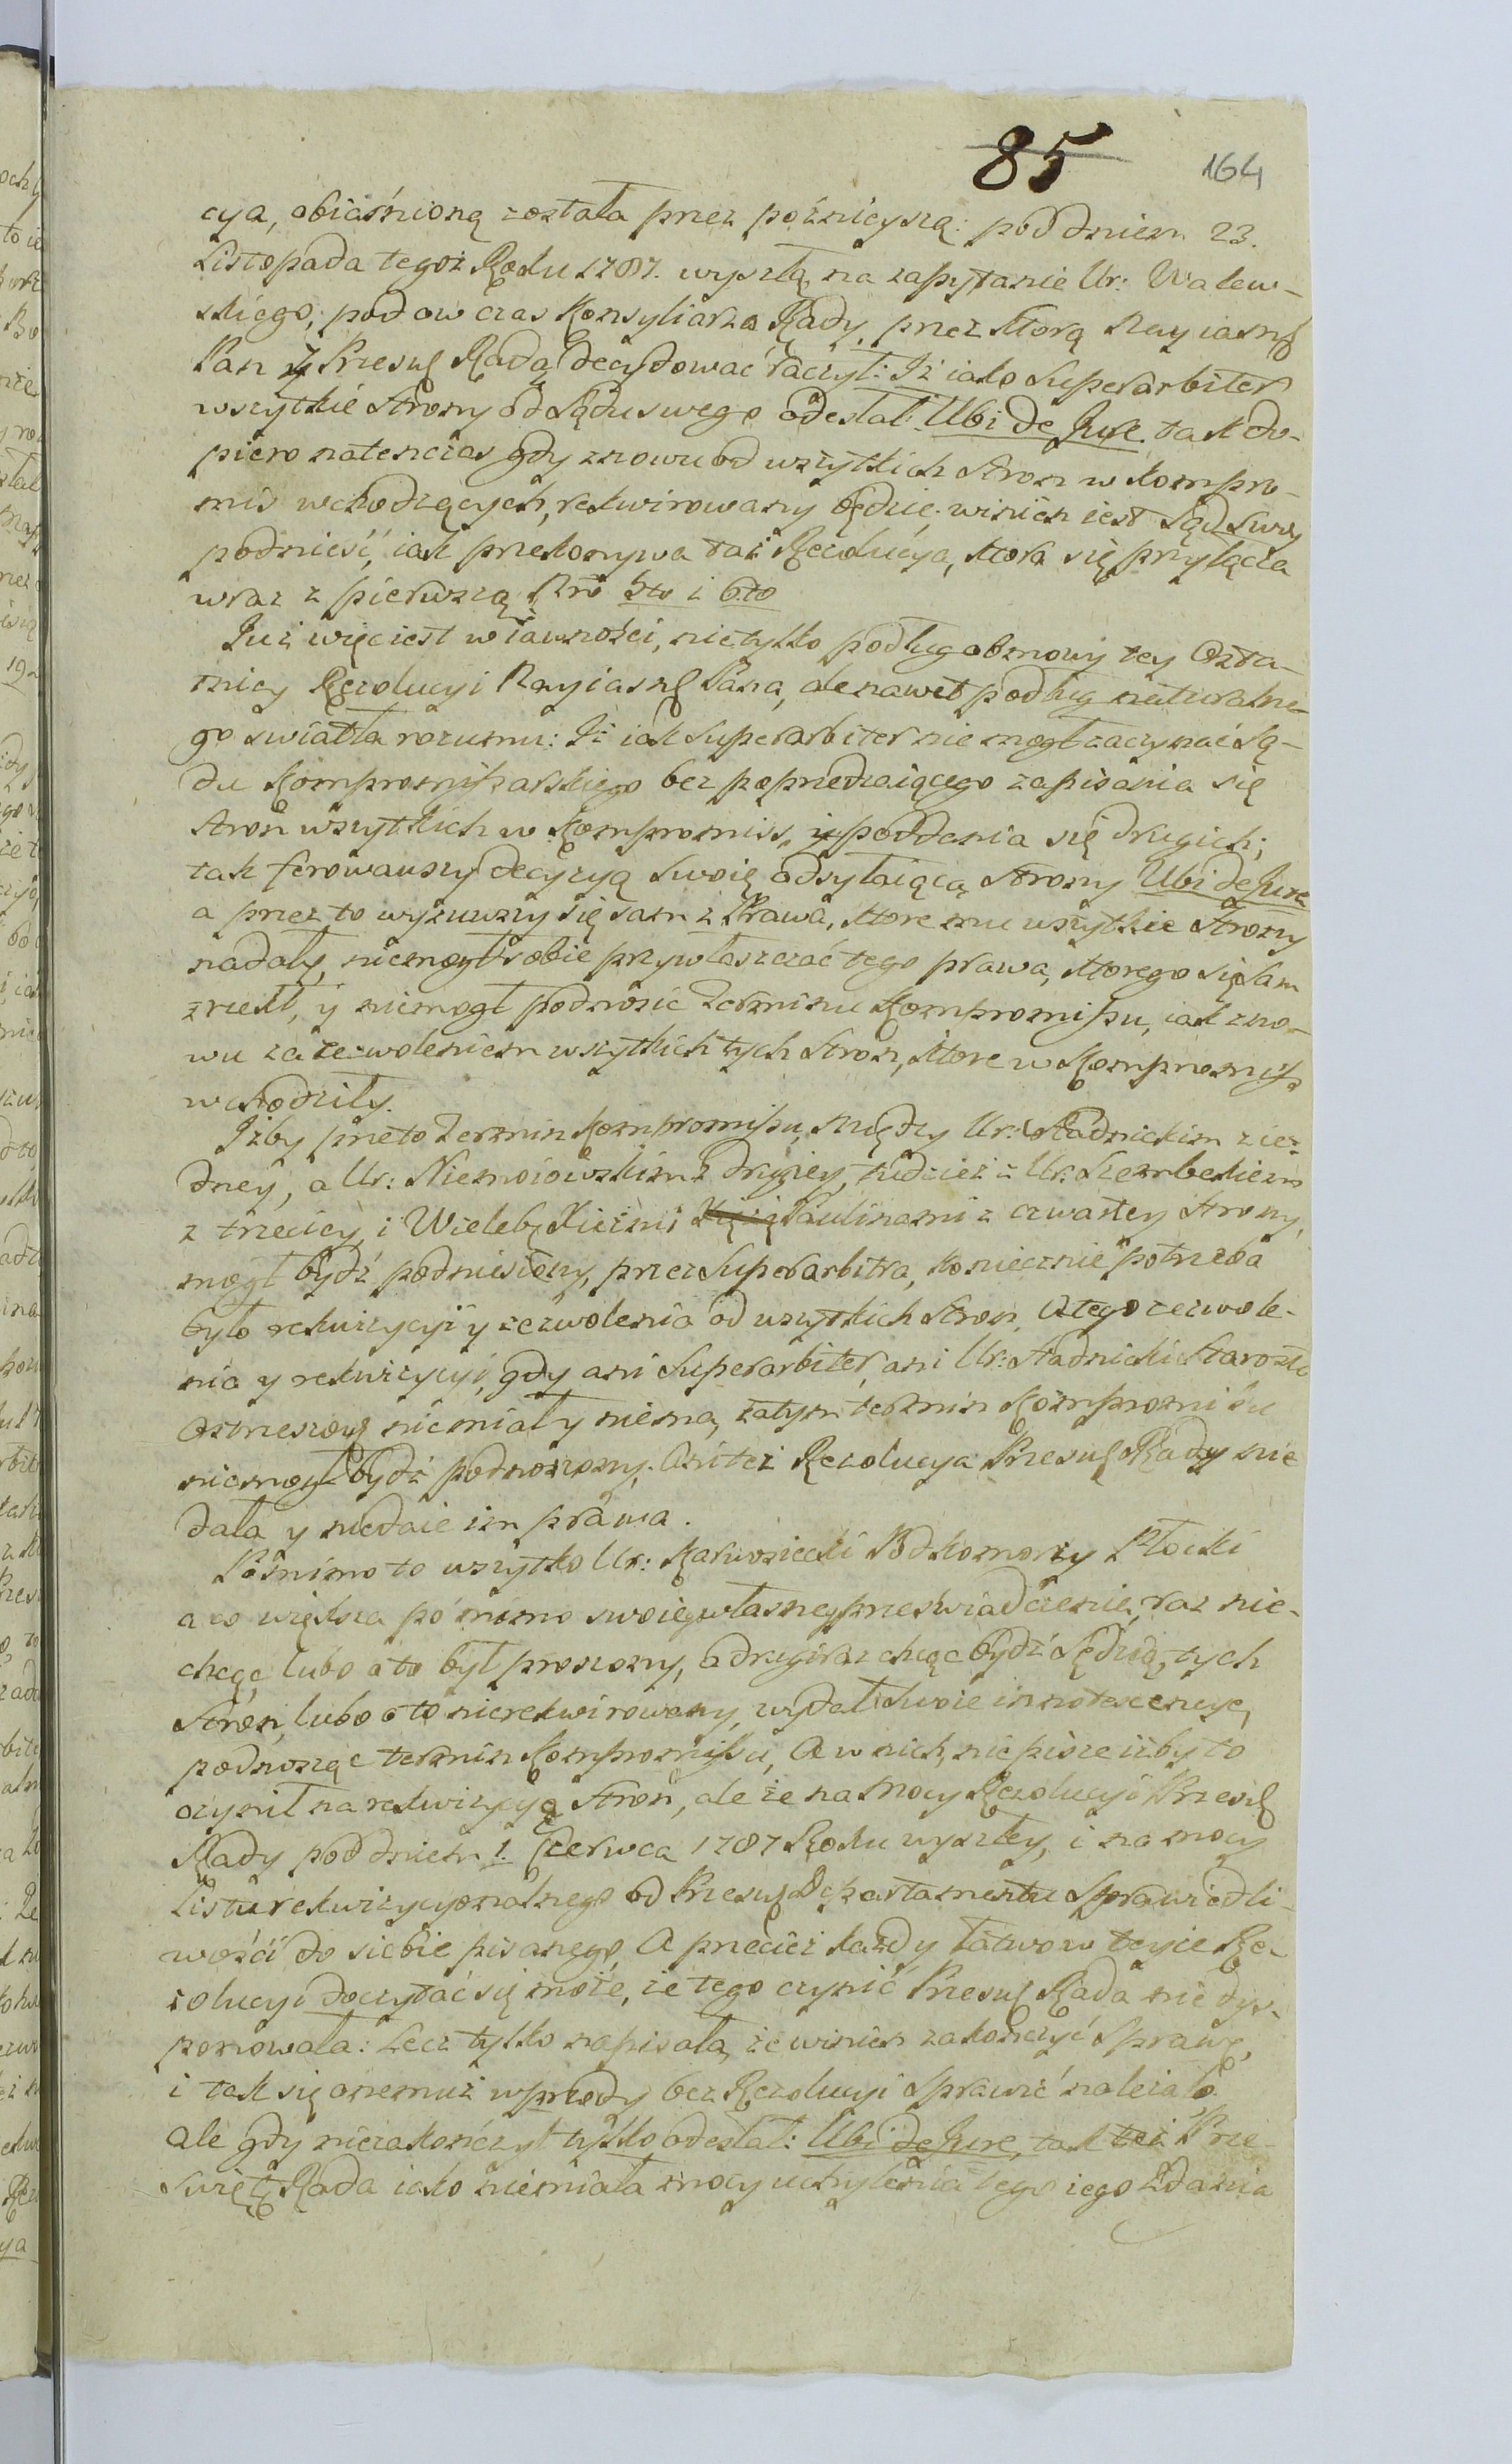 85 164
cya, obiaśnioną została przez poźnieyszą: pod dniem 23.
Listopada tegoż Roku 1787. wyszłą, na zapytanie Ur: Walew-
skiego, pod ow czas Konsyliarza Rady, przez ktorą Nayiasny
Pan z Przesw Radą decydować raczył: Iż iako Superarbiter
wszytkie Strony od Sądu swego odesłał: Ubi de Jure. tak do-
piero natenczas gdy znowu od wszytkich Stron w kompro-
mis wchodzących, rekwirowany będzie, winien iest Sąd Swoy
podnieść, iak przekonywa taż Rezolucya, ktora się przyłącza
wraz z pierwszą Nro 5to i 6to
Już więc iest w iawności, nietylko podług obmowy tey Osta-
tniey Rezolucyi Nayiasn Pana, ale nawet podług naturalne-
go swiatła rozumu: Iż iak Superarbiter nie mogł zaczynać Są-
du Kompromissarskiego bez poprzedzaiącego zapisania się
Stron wszytkich w Kompromiss, y poddania się drugich;
tak ferowawszy decyzyą Swoię odsyłaiącą Strony Ubi de Jure
a przez to wyzuwszy się sam z Prawa, ktore mu wszytkie Strony
nadały, niemogł sobie przywłaszczać tego prawa, ktorego się Sam
zrzekł, y niemogł podnosić Terminu Kompromissu, iak zno-
wu za zezwoleniem wszytkich tych Stron, ktore w Kompromiss
wchodziły.
Iżby przeto Termin Kompromissu, między Ur: Stadnickim z ied-
dney, a Ur: Niemoiowskim z drugiey, tudzież z Ur: Szembekiem
z trzeciey, i Wieleb Xiężmi Paulinami z czwartey Strony,
mogł bydź podniesiony, przez Superarbitra, koniecznie potrzeba
było rekwizycyi y zezwolenia od wszytkich Stron, A tego zezwole-
nia y rekwizycyi, gdy ani Superarbiter, ani Ur: Stadnicki Starosta
Ostrzeszow niemiał y niema, zatym termin Kompromissu
niemogł bydź podnoszony. Ani też Rezolucya Przesw Rady nie
dała y niedaie im prawa.
Pomimo to wszytko Ur: Karwosiecki Podkomorzy Płocki
a co większa pomimo swoie własne przeświadczenie, raz nie-
chcąc, lubo o to był proszony, a drugi raz chcąc bydź Sędzią, tych
Stron, lubo o to nierekwirowany, wydał Swoie innotescencye,
podnosząc termin Kompromissu, A w nich, nie pisze iżby to
czynił na rekwizycyą Stron, ale że na mocy Rezolucyi Przesw
Rady pod dniem 1. Czerwca 1787 Roku wyszłey, i na mocy
Listu rekwizycyonalnego od Przesw Departamentu Sprawiedli-
wości do siebie pisanego, A przecież każdy łatwo w teyże Re-
zolucyi doczytać się może, że tego czynić Przesw Rada nie dys-
ponowała: Lecz tylko napisała, że winien zakończyć Sprawę,
i tak się onemuż wprzody bez Rezolucyi Sprawić należało.
ale gdy niezakończył tylko odesłał: Ubi de Jure, tak też Prze-
Swięt Rada iako niemiała mocy uchylenia tego iego zdania